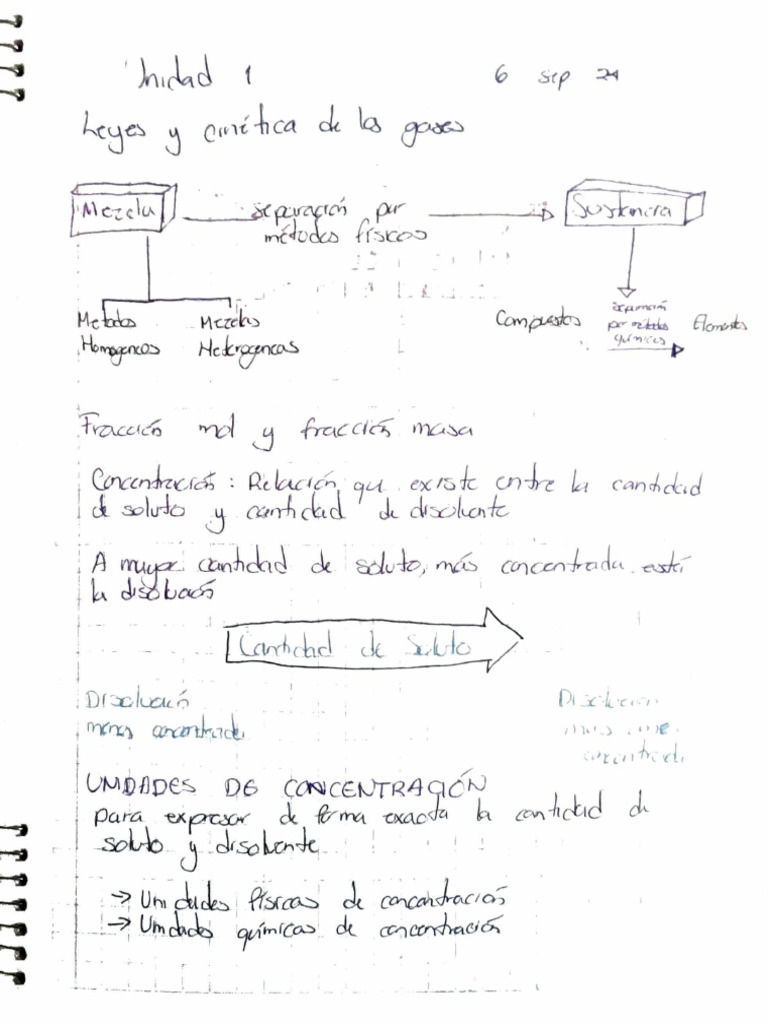 Unidad 1
6 sep 24
Leyes y cinética de los gases
Mezcla
separación por
métodos físicos
Sustancia
Metodos
Homogeneos
Mezclas
Heterogeneas
Compuestos
separación
por metodos
químicos
Elementos
Fracción mol y fracción masa
Concentración : Relación que existe entre la cantidad
de soluto y cantidad de disolvente
A mayor cantidad de soluto, más concentrada está
la disolución
Cantidad de Soluto
Disolución
menos concentrada
Disolución
mas
concentrada
UNIDADES DE CONCENTRACIÓN
para expresar de forma exacta la cantidad de
soluto y disolvente
→ Unidades físicas de concentración
→ Unidades químicas de concentración